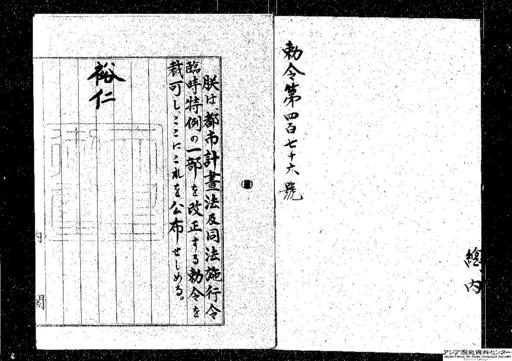 勅令第四百七十六號
總内
朕は、都市計畫法及同法施行令
臨時特例の一部を改正する勅令を
裁可し、ここにこれを公布せしめる。
裕仁
内
閣
アジア歴史資料センター